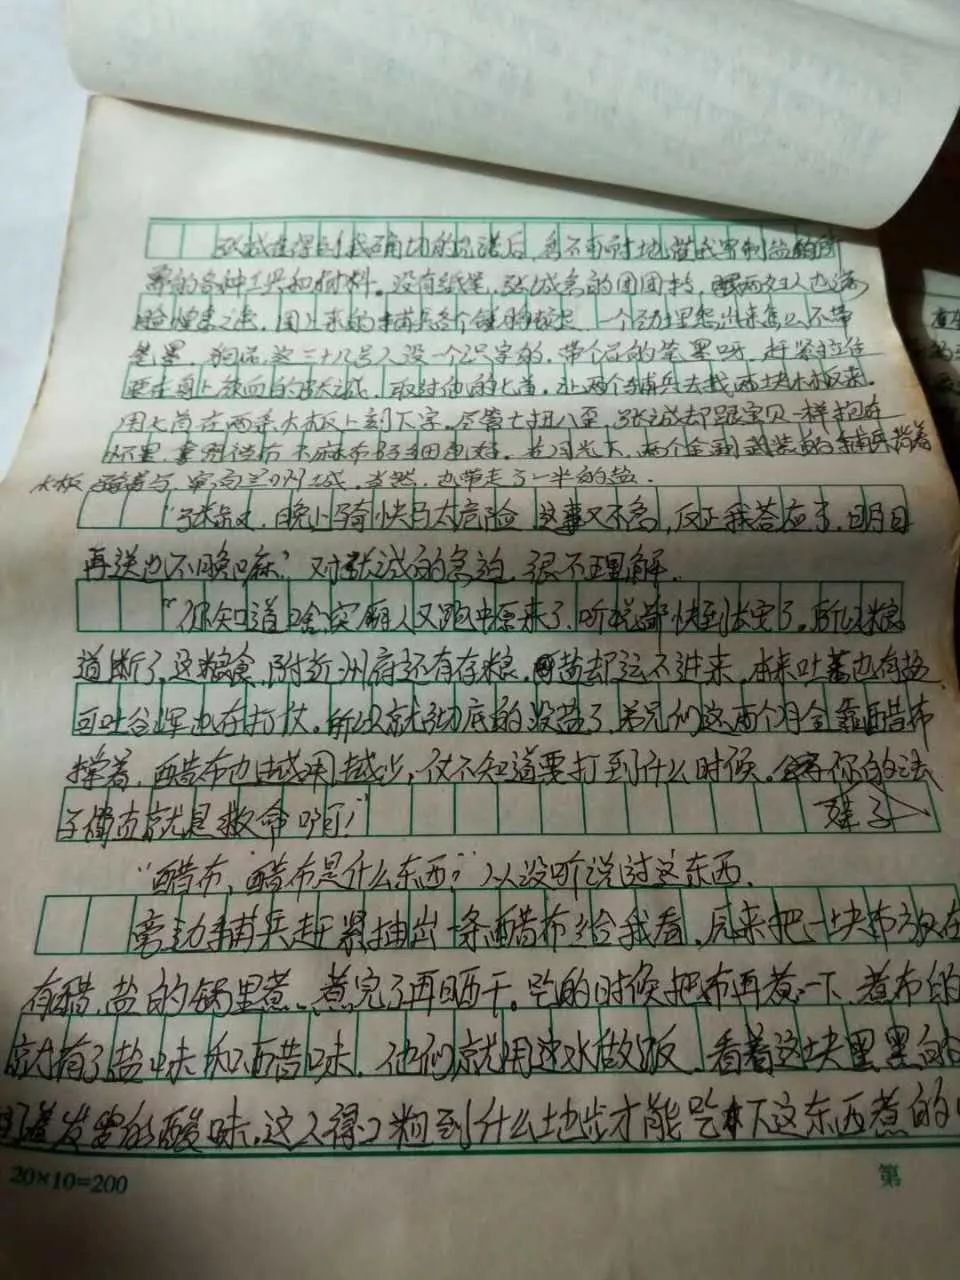 张诚在得到我确切的允诺后,急不可耐地带我写制盐的所
需的各种工具和材料。没有纸笔,张诚急的团团转,
围上来的辅兵各个 一个劲埋怨出来怎么不带
笔墨,狗屁,这三十几号人没一个识字的,带个屁的笔墨呀,赶紧拉住
要在身上放血的张诚,取过他的匕首,让两个辅兵去找两块木板来。
用匕首在两条木板上刻下字。尽管七扭八歪,张诚却跟宝贝一样抱在
怀里,拿 布 麻布仔细包好。 两个全副武装的辅兵 着
木板 兰州城,当然,也带走了一半的盐.
“张 ,晚上骑快马太危险 这事又不急,反正我答应了,明日
再送也不晚嘛?”对张诚的急迫,很不理解.
“你知道啥,突厥人又跑中原来了,听说都快到长安了。所以粮
道断了,这粮食,附近州府还有存粮,盐却运不进来,本来吐蕃也有盐,
可吐谷浑也在打仗。所以就彻底的没盐了,弟兄们这两个月全靠醋布
撑着,醋布也越用越少,仗不知道要打到什么时候。 你的法
子 就是救命啊!”
“醋布,醋布是什么东西?” 没听说过这东西.
旁边辅兵赶紧抽出一条醋布给我看,原来把一块布放在
有醋,盐的锅里煮、煮完了再晒干。吃的时候把布再煮一下、煮布的
就有了盐味和醋味,他们就用这水做饭,看着这块黑黑的
着发 的酸味,这人得 到什么地步才能吃下这东西煮的
20×10=200
第